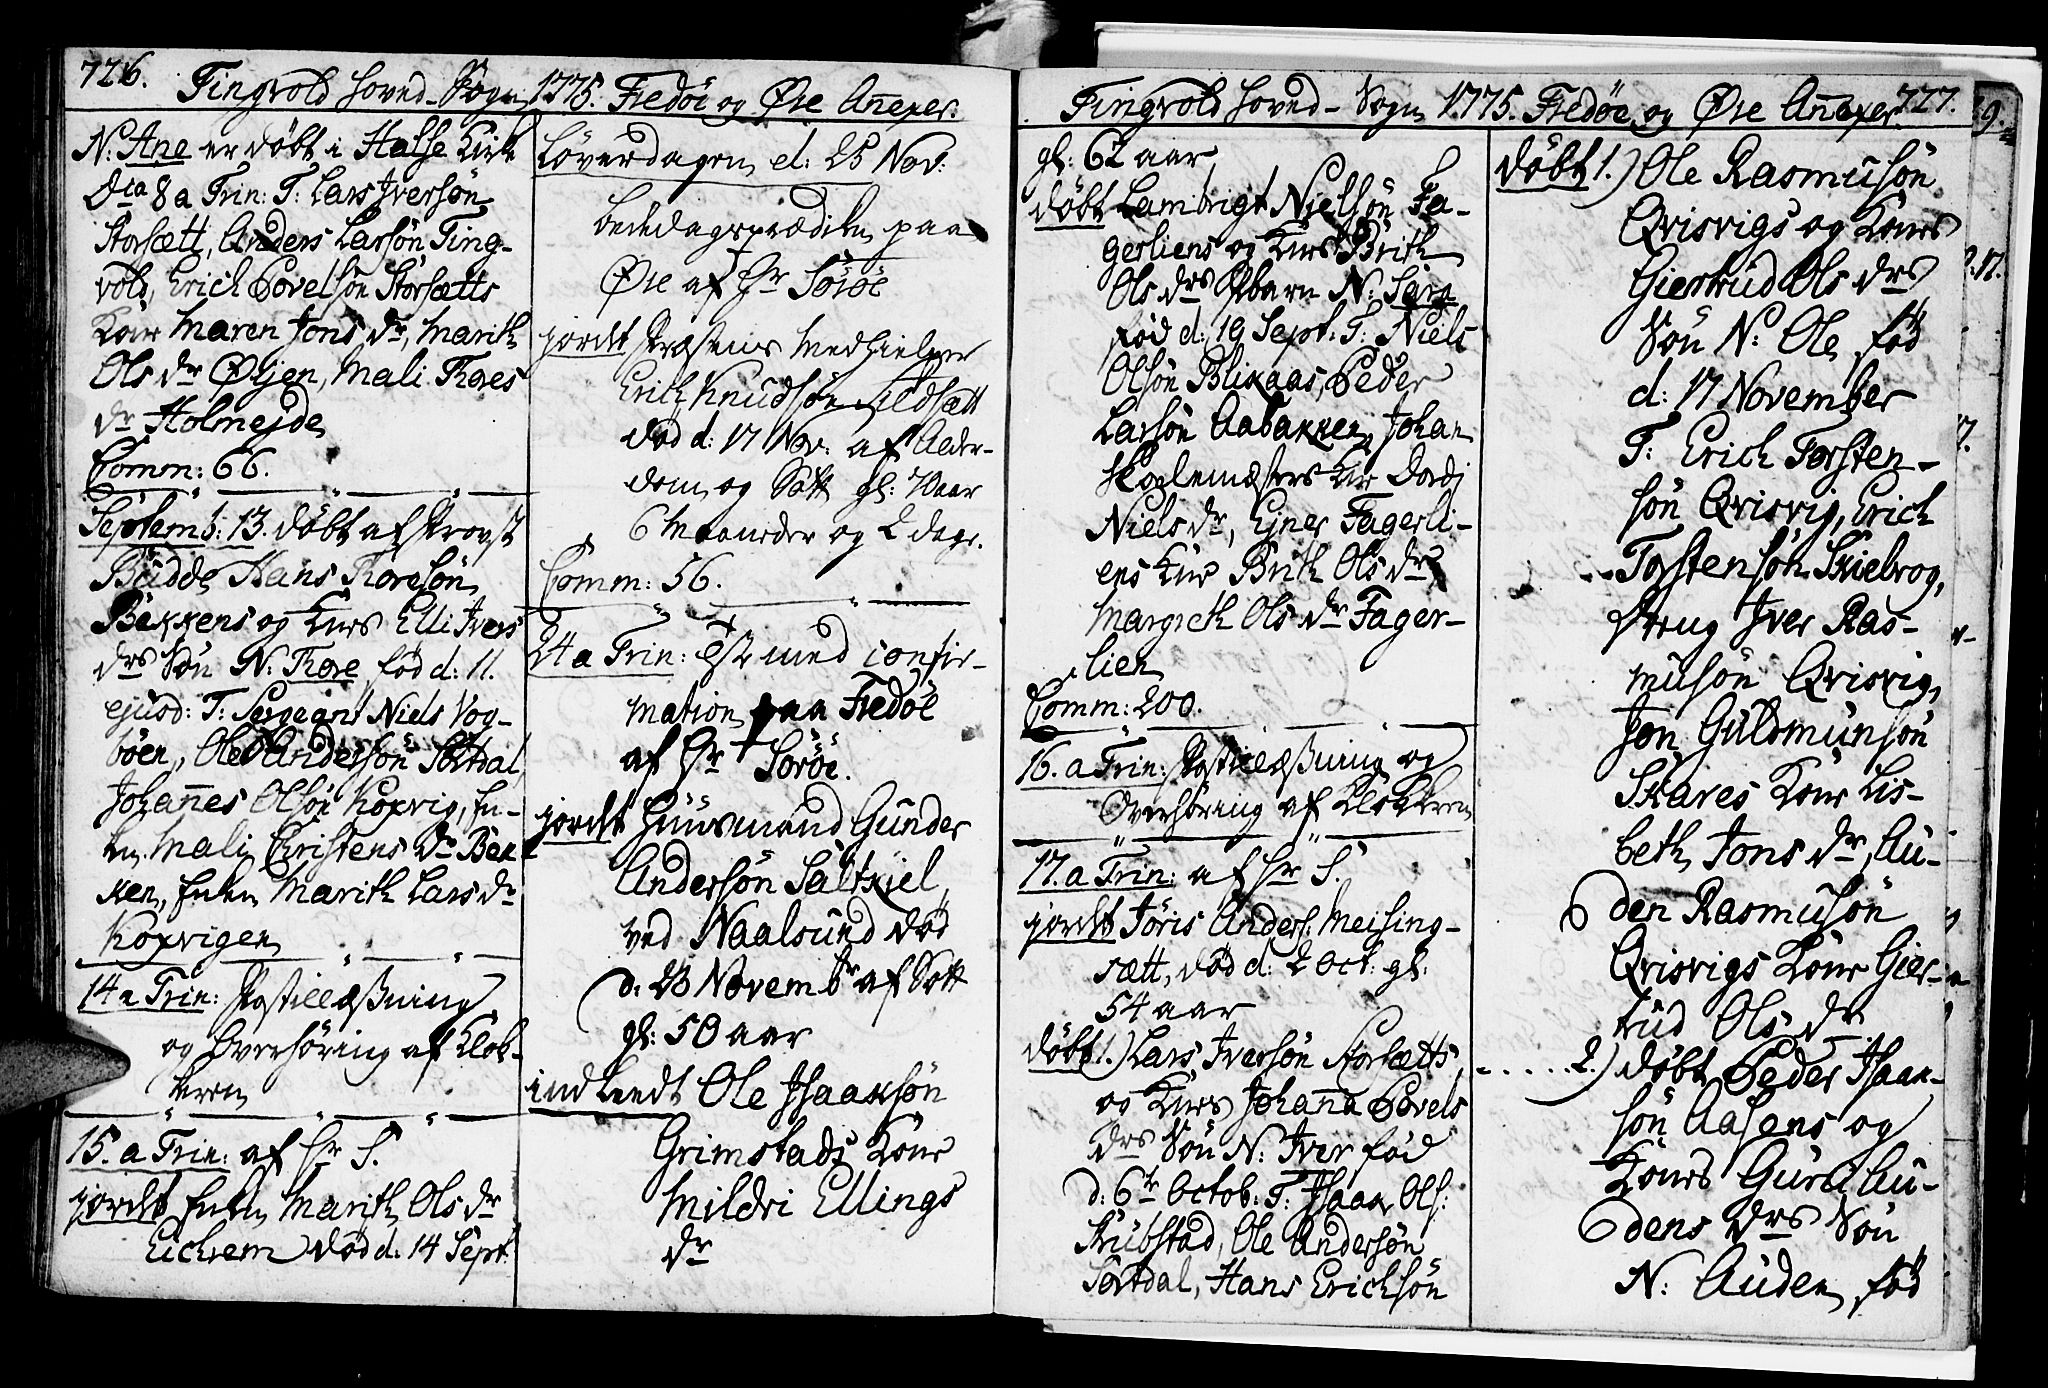 726. Tingvold Hoved-Sogn 1775. Fredøe og Øre Añexer.
N: Ane er døbt i Halse Kirke
Dca 8 a Trin: T: Lars Iversøn
Storsætt, Anders Larsøn Ting-
vold, Erich Povelsøn Storsætts
Kone Maren Jons dr, Marith
Ols dr Øijen, Mali Tores
dr Holmejde
Comm: 66.
Septemb: 13. døbt af Provst
Budde Hans Toresøn
Bekkens og Kns Elli Ivers
drs Søn N: Tore fød d: 11.
ejusd: T: Sergeant Niels Vog-
bøen, Ole Andersøn Sortdal,
Johañes Olsøn Koxvig, En-
ken Mali Christens dr Bek
ken, Enken Marith Lars dr
Koxvigen
14 a Trin: Postillæsning
og Overhøring af Klok-
keren
15. a Trin: af Hr S.
jordet Enken Marith Ols dr
Eichrem død d: 14 Sept:
Løverdagen d: 25 Nov:
bededagsprædiken paa
Øre af Hr Sørøe
jordet Præstens Medhielper
Erich Knudsøn Sildsætt
død d: 17 Nov: af Alder-
dom og Sott gl: 70 aar
6 Maaneder og 2 dage.
Comm: 56.
24 a Trin: Tieniste med confir-
mation paa Fredøe
af Hr Sørøe.
jordet Huusmand Gunder
Andersøn Saltkiel
ved Naalsund død
d. 23 Novembr af Sott
gl: 50 aar
indleedt Ole Isaaksøn
Grimstads Kone
Mildri Ellings
dr
Tingvold Hoved-Sogn 1775. Fredøe og Øre Añexer 727.
gl: 62 aar
døbt Lambrigt Nielsøn Fa-
gerliens og Kns Brith
Ols drs Pbarn N: Sara
fød d: 19 Sept. T: Niels
Olsøn Blikaas, Peder
Larsøn Aabakken, Johan
Skoglemesters Kne Dordi
Niels dr, Ejner Fagerli-
ens Kne Brith Ols dr
Margreth Ols dr Fager-
lien
Comm: 200.
16. a Trin: Postillæsning og
Overhøring af Klokkeren
17. a Trin: af Hr S.
jordet Jøris Anders: Meising-
sætt, død d: 2 Oct: gl:
54 aar
døbt 1.) Lars Iversøn Storsætts
og Kns Johanna Povels
drs Søn N: Iver fød
d: 6tr Octob: T: Isaak Ols:
Stubstad, Ole Andersøn
Sortdal, Hans Erichsøn
døbt 1.) Ole Rasmusøn
Qvisvigs og Kones
Giertrud Ols drs
Søn N: Ole fød
d: 17 November
T: Erich Torsten-
søn Qvisvig, Erich
Torstensøn Skielvog,
Dreng Iver Ras-
musøn Qvisvig,
Jon Guldmunsøn
Skares Kone Lis-
beth Jons dr, Au-
den Rasmusøn
Qvisvigs Kone Gier-
trud Ols dr
2.) døbt Peder Isaak-
søn Aasens og
Kones Guru Au-
dens drs Søn
N: Auden fød